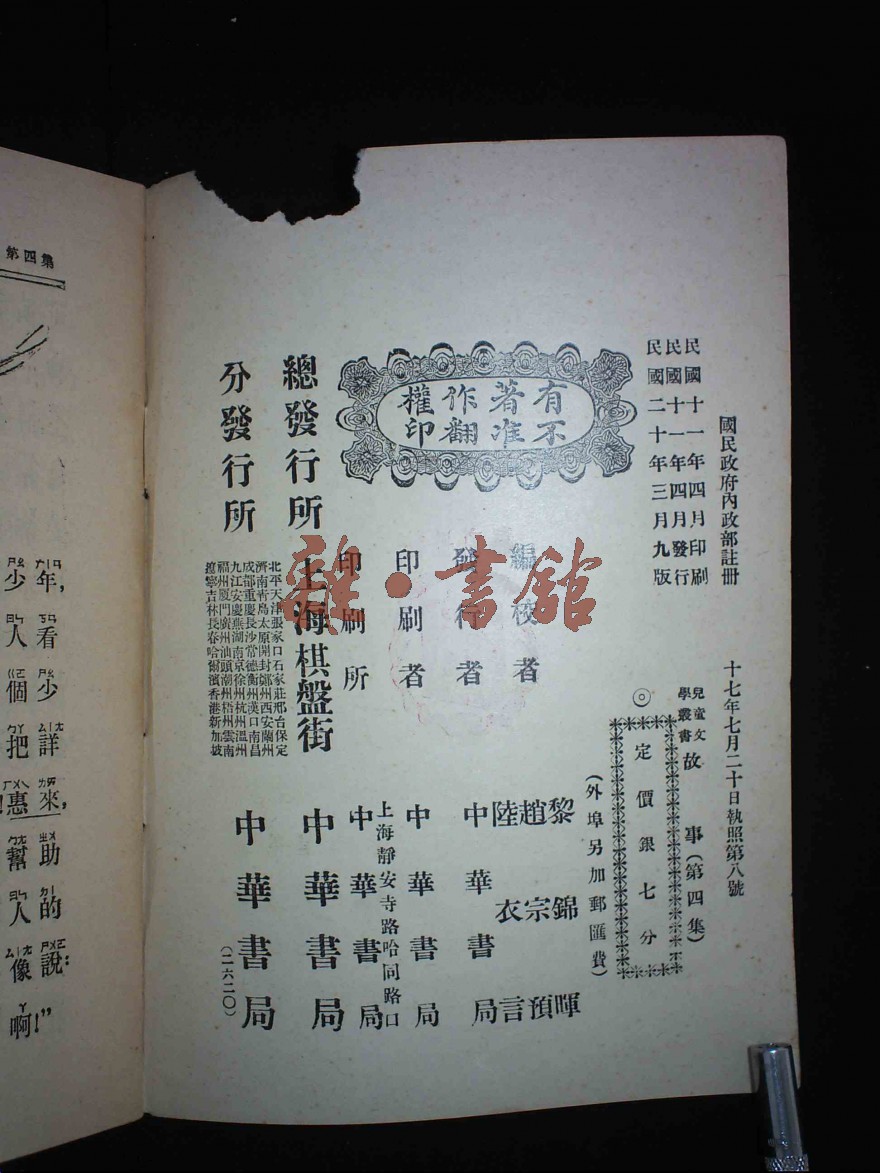 國民政府內政部註冊 十七年七月二十日執照第八號
民國十一年四月印刷
民國十一年四月發行
民國二十年三月九版
兒童文學叢書 故事(第四集)
◎定價銀七分
(外埠另加郵匯費)
有著作權
不准翻印
編校者 黎錦暉
趙宗預
陸衣言
發行者 中華書局
印刷者 中華書局
印刷所 上海靜安寺路哈同路口
中華書局
總發行所 上海棋盤街 中華書局
分發行所
北平天津張家口石家莊邢台保定
濟南青島太原開封鄭州西安蘭州
成都重慶長沙常德衡州漢口南昌
九江安慶蕪湖南京徐州杭州溫州
福州廈門廣州汕頭潮州梧州雲南
遼寧吉林長春哈爾濱香港新加坡
中華書局
(二六二〇)
雜·書館
第四集
年,看少詳來,助的說:
少人個把惠幫人像啊!”